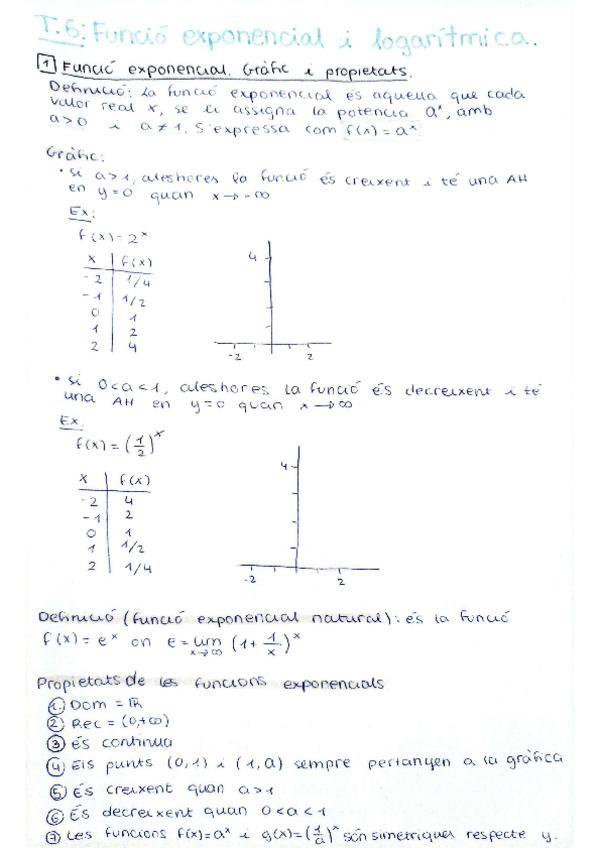 T.6: Funció exponencial i logarítmica.
1 Funció exponencial. Gràfic i propietats.
Definició: La funció exponencial és aquella que cada
valor real x, se li assigna la potència aˣ, amb
a>0 i a≠1. S'expressa com f(x)=aˣ
Gràfic:
• Si a>1, aleshores la funció és creixent i té una AH
en y=0 quan x→-∞
Ex:
f(x)=2ˣ
x | f(x)
-2 | 1/4
-1 | 1/2
0 | 1
1 | 2
2 | 4
4
-2 2
• Si 0<a<1, aleshores la funció és decreixent i té
una AH en y=0 quan x→∞
Ex.
f(x)=(1/2)ˣ
x | f(x)
-2 | 4
-1 | 2
0 | 1
1 | 1/2
2 | 1/4
4
-2 2
Definició (funció exponencial natural): és la funció
f(x)=eˣ on e=lim x→∞ (1+1/x)ˣ
Propietats de les funcions exponencials
1. Dom = ℝ
2 Rec = (0,+∞)
3 És contínua
4 Els punts (0,1) i (1,a) sempre pertanyen a la gràfica
5 És creixent quan a>1
6 És decreixent quan 0<a<1
7 Les funcions f(x)=aˣ i g(x)=(1/a)ˣ són simètriques respecte y.